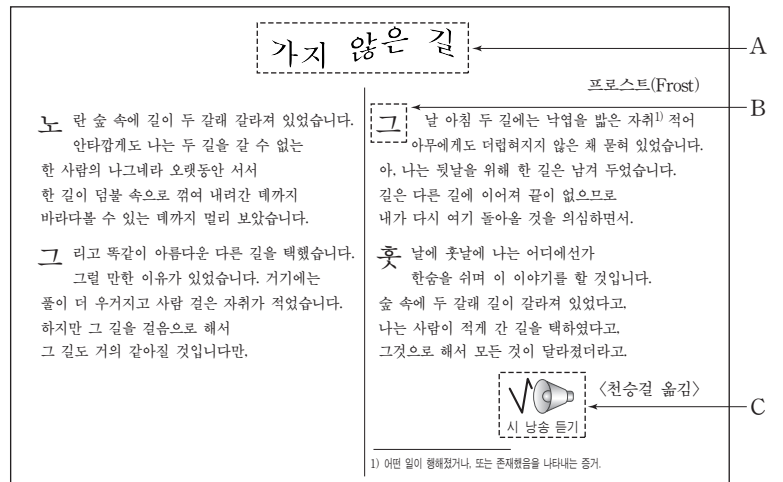 가지 않은 길
A
프로스트(Frost)
노란 숲 속에 길이 두 갈래 갈라져 있었습니다.
안타깝게도 나는 두 길을 갈 수 없는
한 사람의 나그네라 오랫동안 서서
한 길이 덤불 속으로 꺾여 내려간 데까지
바라다볼 수 있는 데까지 멀리 보았습니다.
그리고 똑같이 아름다운 다른 길을 택했습니다.
그럴 만한 이유가 있었습니다. 거기에는
풀이 더 우거지고 사람 걸은 자취가 적었습니다.
하지만 그 길을 걸음으로 해서
그 길도 거의 같아질 것입니다만,
B
그날 아침 두 길에는 낙엽을 밟은 자취1) 적어
아무에게도 더럽혀지지 않은 채 묻혀 있었습니다.
아, 나는 뒷날을 위해 한 길은 남겨 두었습니다.
길은 다른 길에 이어져 끝이 없으므로
내가 다시 여기 돌아올 것을 의심하면서.
훗날에 훗날에 나는 어디에선가
한숨을 쉬며 이 이야기를 할 것입니다.
숲 속에 두 갈래 길이 갈라져 있었다고,
나는 사람이 적게 간 길을 택하였다고,
그것으로 해서 모든 것이 달라졌더라고.
〈천승걸 옮김〉
시 낭송 듣기
C
1) 어떤 일이 행해졌거나, 또는 존재했음을 나타내는 증거.